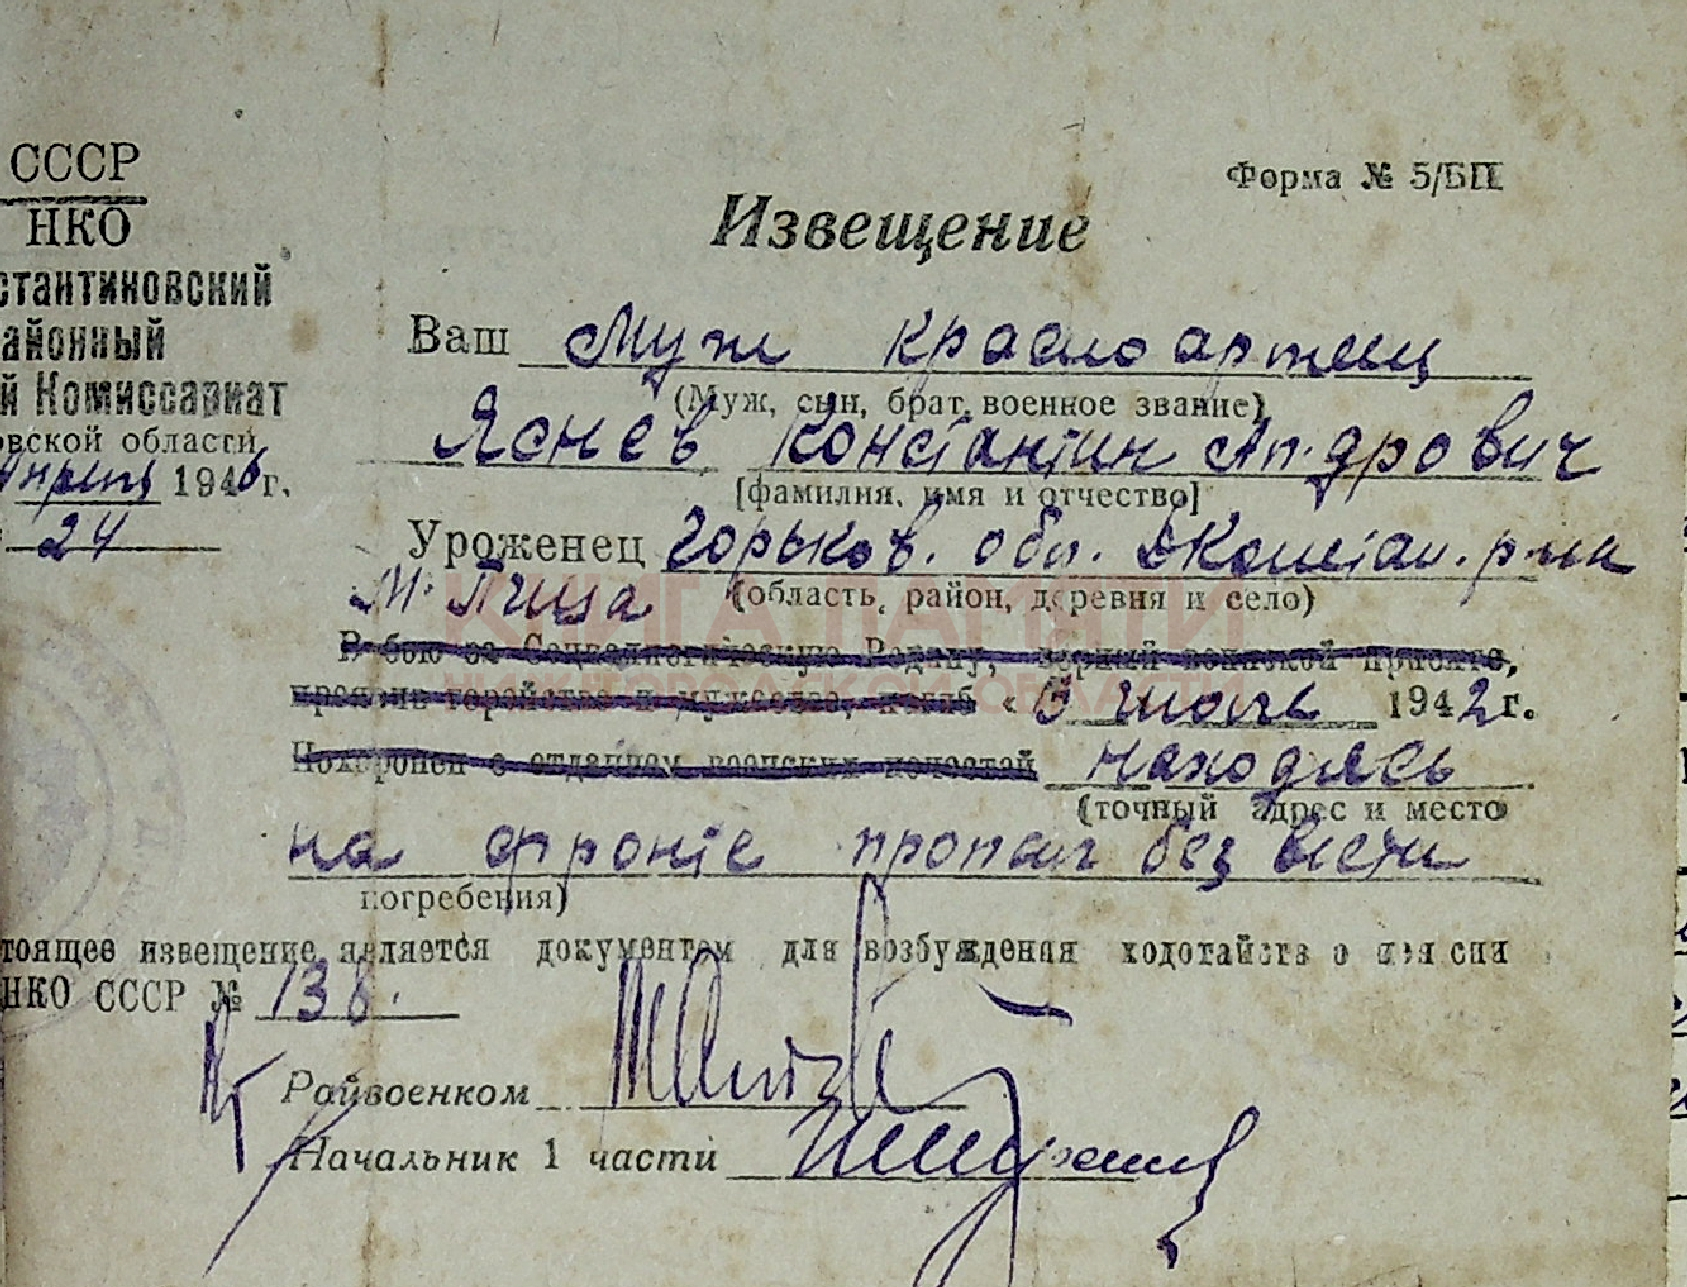 СССР
НКО
стантиновский
айонный
й Комиссариат
овской области
Апреля 1946 г.
24
Форма № 5/БП
Извещение
Ваш Муж красноармеец
(Муж, сын, брат, военное звание)
Яснев Константин
[фамилия, имя и отчество]
Уроженец Горьков. обл. р-на
(область, район, деревня и село)
В бою за Социалистическую Родину, верный воинской присяге,
проявив геройство и мужество, погиб « июль 1942 г.
Похоронен с отданием воинских почестей находясь
(точный адрес и место
на фронте пропал без вести
погребения)
тоящее извещение является документом для возбуждения ходотайств о пенсии
НКО СССР № 138.
Райвоенком
Начальник 1 части
КНИГА ПАМЯТИ
НИЖЕГОРОДСКОЙ ОБЛАСТИ